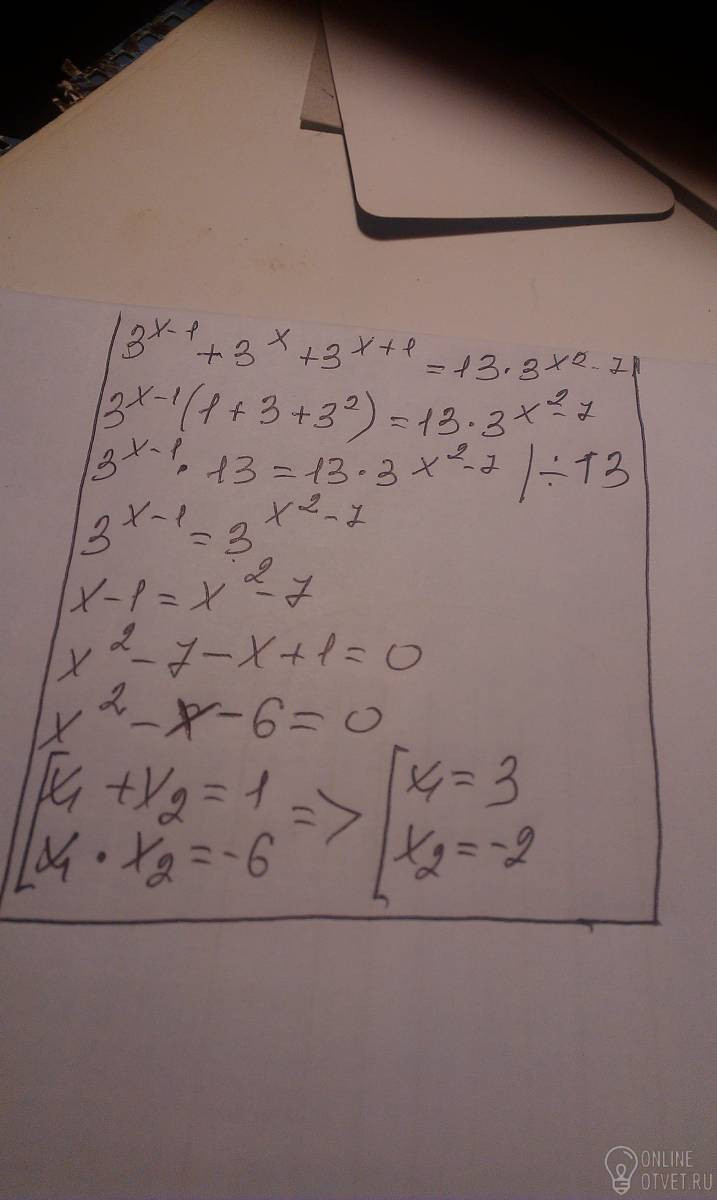 3^(x-1) + 3^x + 3^(x+1) = 13·3^(x²-7)
3^(x-1)(1+3+3²) = 13·3^(x²-7)
3^(x-1)·13 = 13·3^(x²-7) |÷13
3^(x-1) = 3^(x²-7)
x-1 = x²-7
x²-7-x+1=0
x²-x-6=0
[x₁+x₂=1 => [x₁=3
[x₁·x₂=-6 [x₂=-2
ONLINE
OTVET.RU